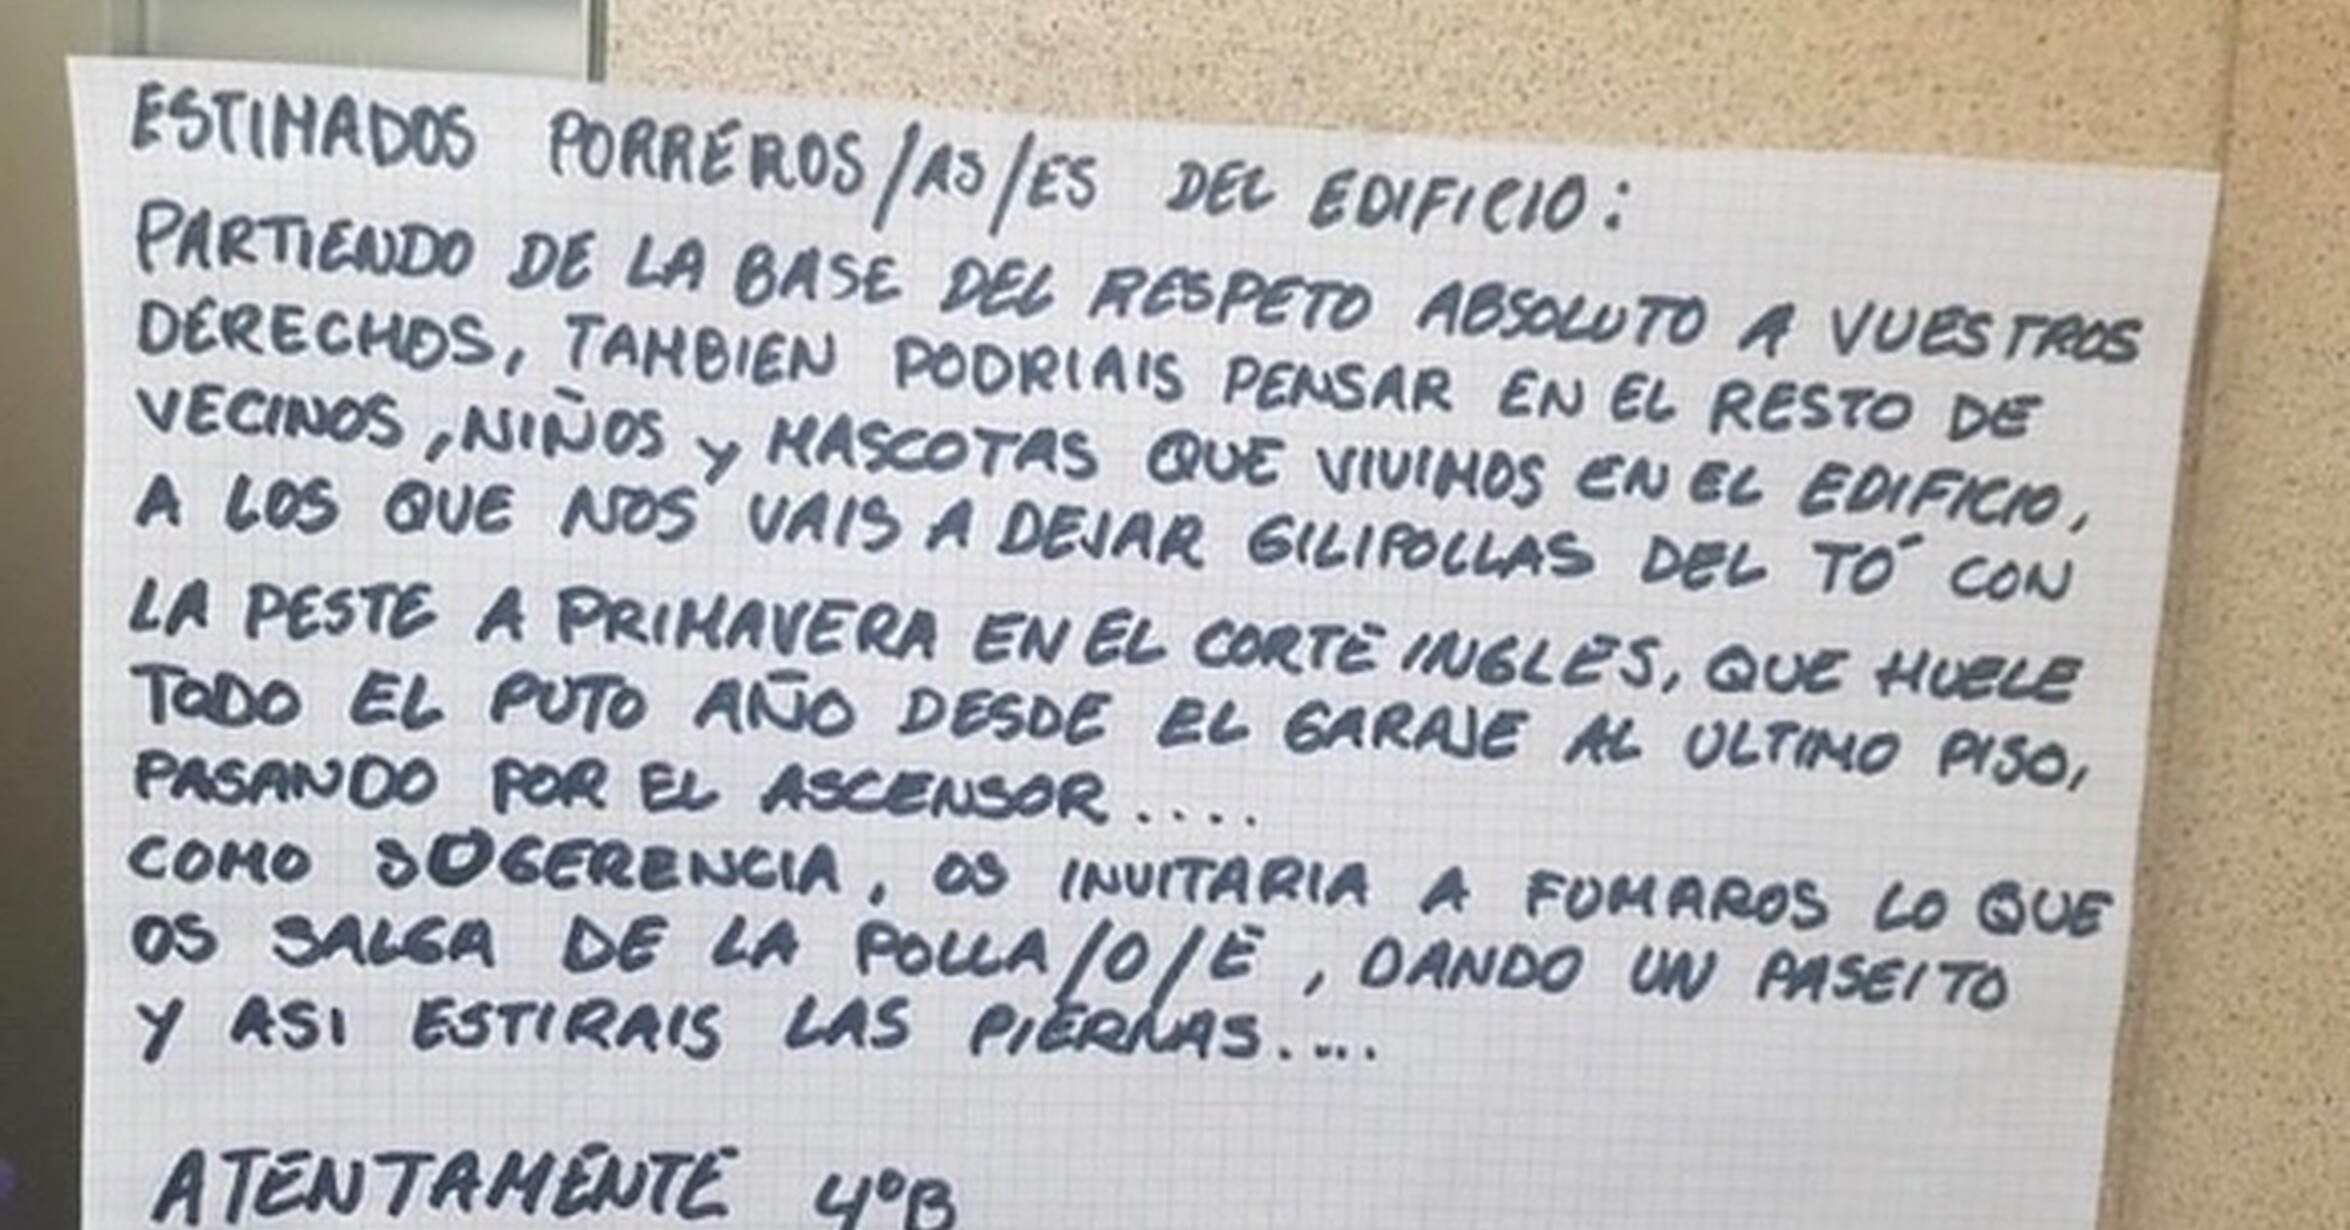 ESTIMADOS PORREROS/AS/ES DEL EDIFICIO:
PARTIENDO DE LA BASE DEL RESPETO ABSOLUTO A VUESTROS
DERECHOS, TAMBIEN PODRIAIS PENSAR EN EL RESTO DE
VECINOS, NIÑOS Y MASCOTAS QUE VIVIMOS EN EL EDIFICIO,
A LOS QUE NOS VAIS A DEJAR GILIPOLLAS DEL TO´ CON
LA PESTE A PRIMAVERA EN EL CORTE INGLES, QUE HUELE
TODO EL PUTO AÑO DESDE EL GARAJE AL ULTIMO PISO,
PASANDO POR EL ASCENSOR....
COMO SUGERENCIA, OS INVITARIA A FUMAROS LO QUE
OS SALGA DE LA POLLA/O/E, DANDO UN PASEITO
Y ASI ESTIRAIS LAS PIERNAS....
ATENTAMENTE 4ºB